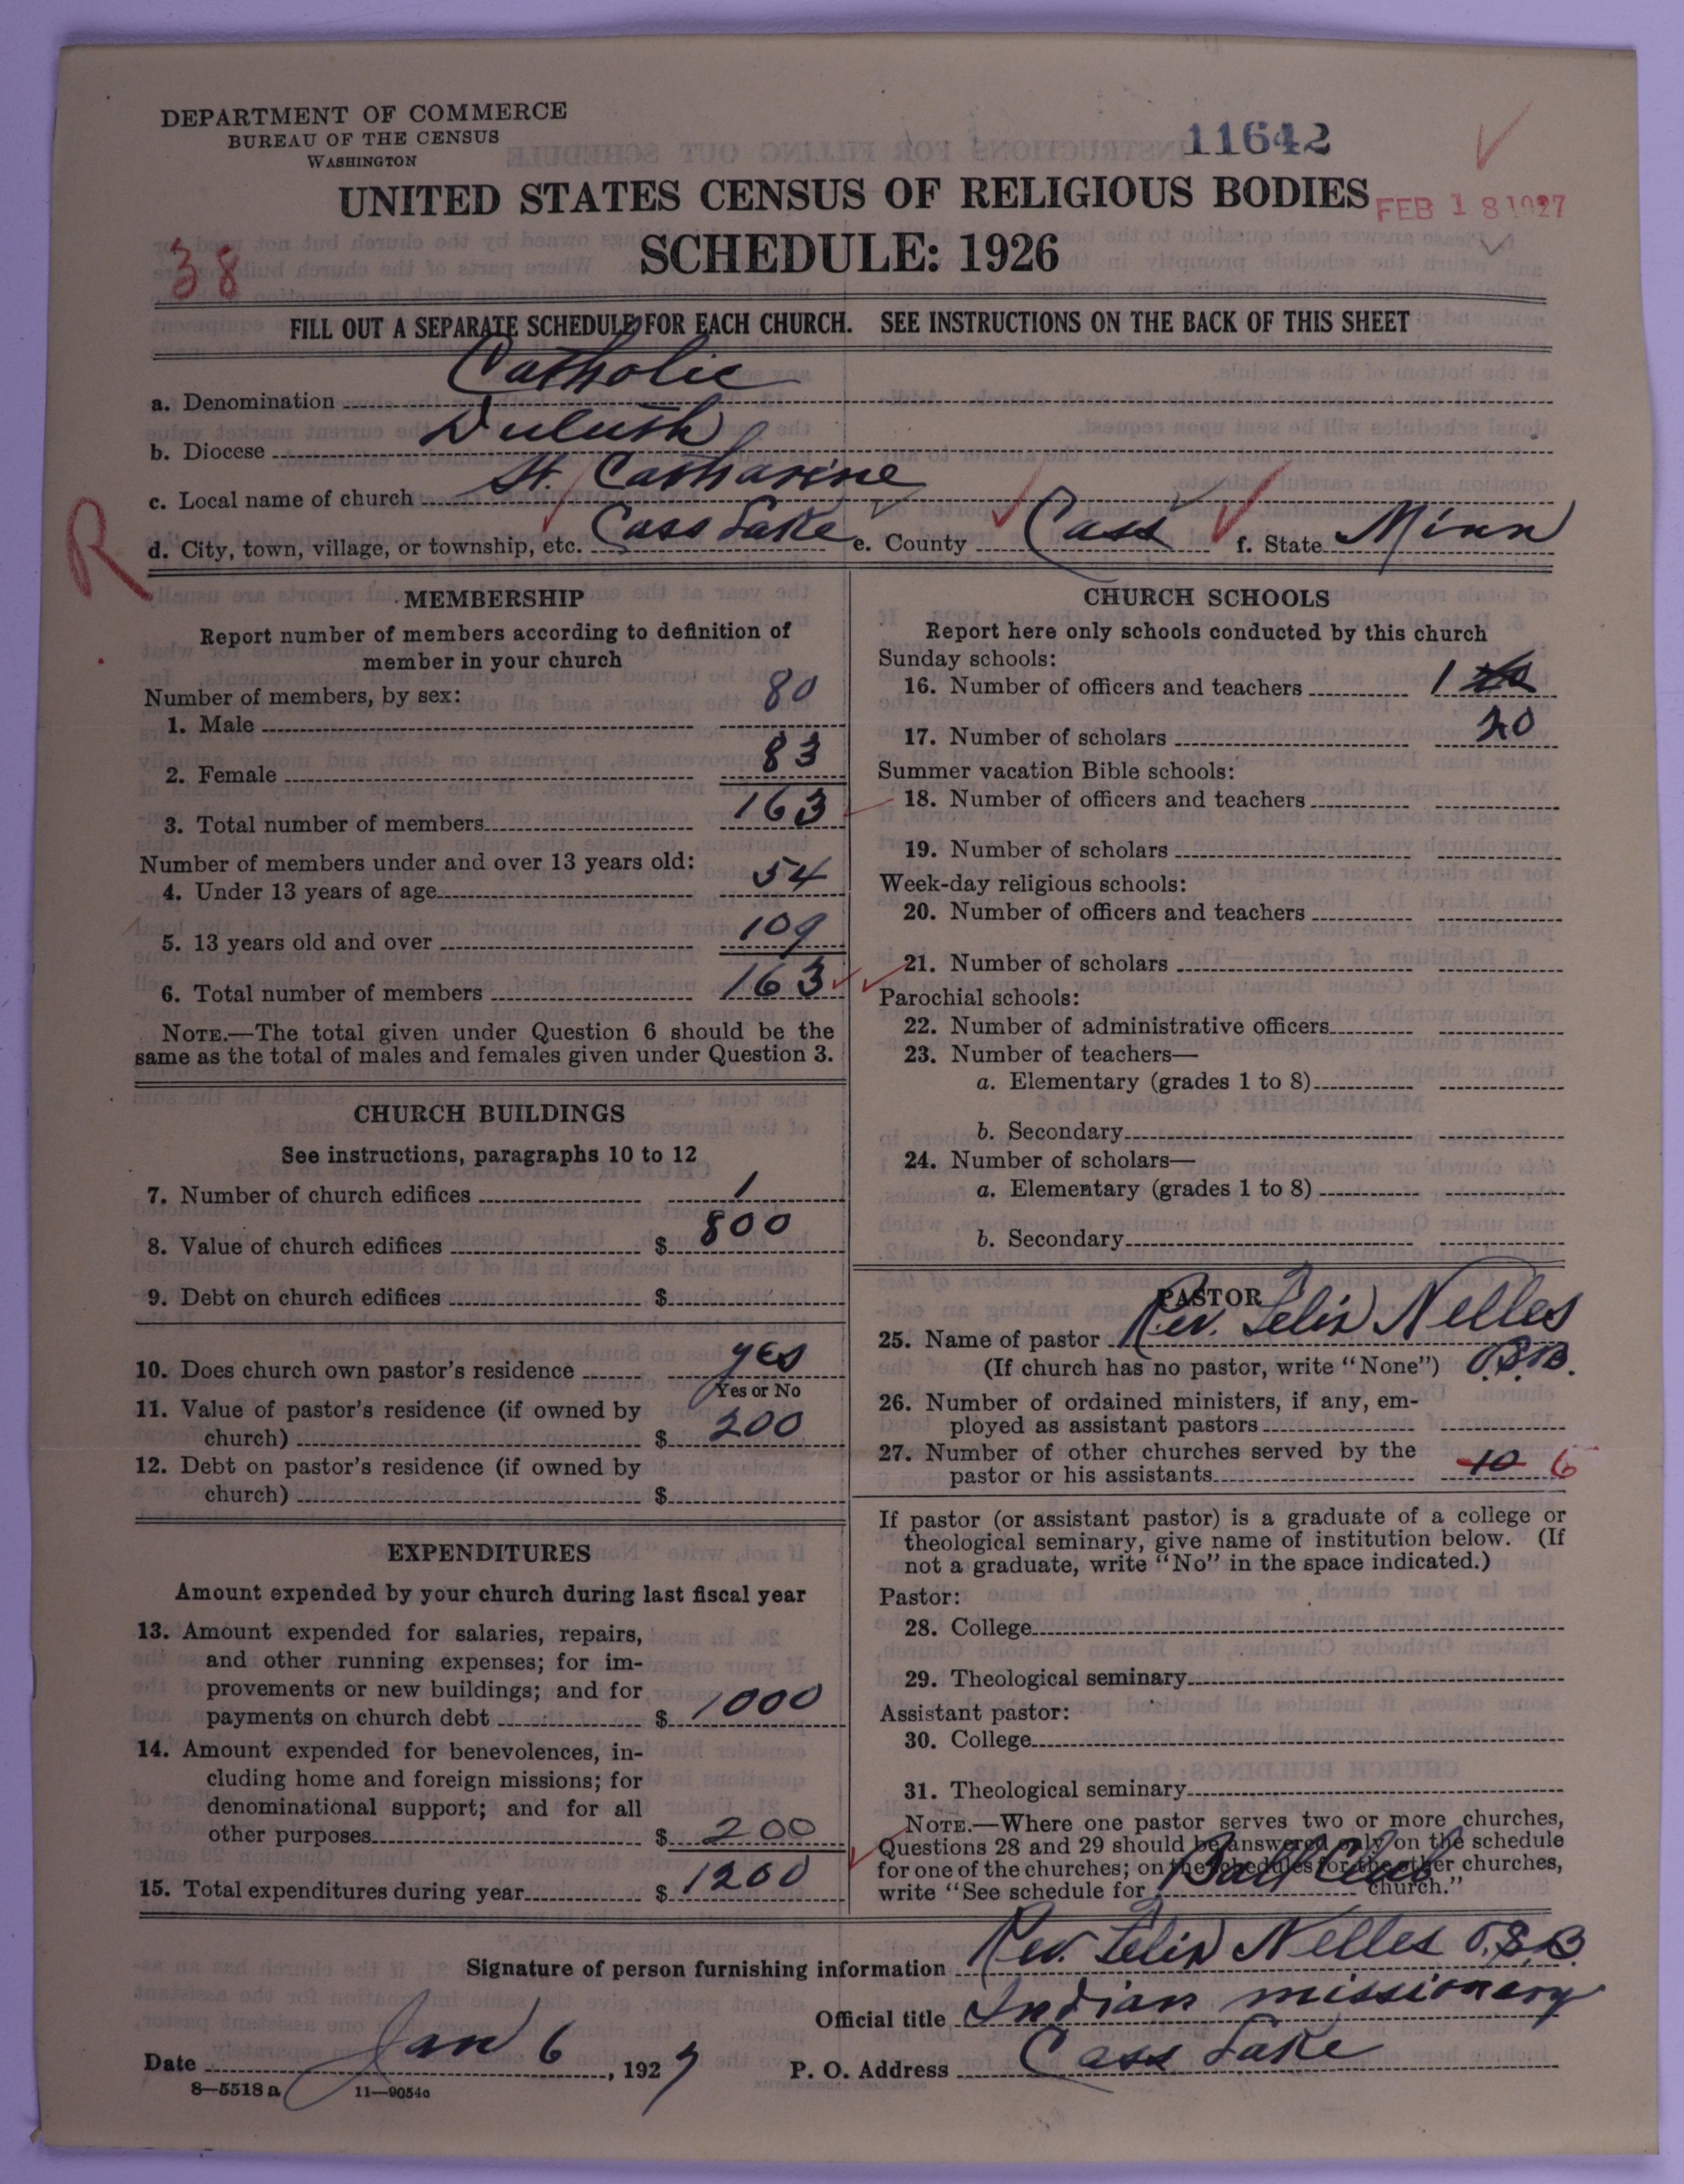 DEPARTMENT OF COMMERCE
BUREAU OF THE CENSUS
WASHINGTON
11642
UNITED STATES CENSUS OF RELIGIOUS BODIES
FEB 18 1927
SCHEDULE: 1926
38
FILL OUT A SEPARATE SCHEDULE FOR EACH CHURCH. SEE INSTRUCTIONS ON THE BACK OF THIS SHEET
a. Denomination Catholic
b. Diocese Duluth
c. Local name of church St. Catharine
R
d. City, town, village, or township, etc. Cass Lake e. County Cass f. State Minn
MEMBERSHIP
Report number of members according to definition of
member in your church
Number of members, by sex:
1. Male 80
2. Female 83
3. Total number of members 163
Number of members under and over 13 years old:
4. Under 13 years of age 54
5. 13 years old and over 109
6. Total number of members 163
NOTE.—The total given under Question 6 should be the
same as the total of males and females given under Question 3.
CHURCH BUILDINGS
See instructions, paragraphs 10 to 12
7. Number of church edifices 1
8. Value of church edifices $ 800
9. Debt on church edifices $
10. Does church own pastor's residence yes
Yes or No
11. Value of pastor's residence (if owned by
church) $ 200
12. Debt on pastor's residence (if owned by
church) $
EXPENDITURES
Amount expended by your church during last fiscal year
13. Amount expended for salaries, repairs,
and other running expenses; for im-
provements or new buildings; and for
payments on church debt $ 1000
14. Amount expended for benevolences, in-
cluding home and foreign missions; for
denominational support; and for all
other purposes $ 200
15. Total expenditures during year $ 1200
CHURCH SCHOOLS
Report here only schools conducted by this church
Sunday schools:
16. Number of officers and teachers 1
17. Number of scholars 20
Summer vacation Bible schools:
18. Number of officers and teachers
19. Number of scholars
Week-day religious schools:
20. Number of officers and teachers
21. Number of scholars
Parochial schools:
22. Number of administrative officers
23. Number of teachers—
a. Elementary (grades 1 to 8)
b. Secondary
24. Number of scholars—
a. Elementary (grades 1 to 8)
b. Secondary
PASTOR
25. Name of pastor Rev. Felix Nelles
(If church has no pastor, write "None") O.S.B.
26. Number of ordained ministers, if any, em-
ployed as assistant pastors
27. Number of other churches served by the
pastor or his assistants 10 6
If pastor (or assistant pastor) is a graduate of a college or
theological seminary, give name of institution below. (If
not a graduate, write "No" in the space indicated.)
Pastor:
28. College
29. Theological seminary
Assistant pastor:
30. College
31. Theological seminary
NOTE.—Where one pastor serves two or more churches,
Questions 28 and 29 should be answered only on the schedule
for one of the churches; on the schedules for the other churches,
write "See schedule for Ball Club church."
Signature of person furnishing information Rev. Felix Nelles O.S.B.
Official title Indian missionary
Date Jan 6, 1927 P. O. Address Cass Lake
8—5518a 11—9054a